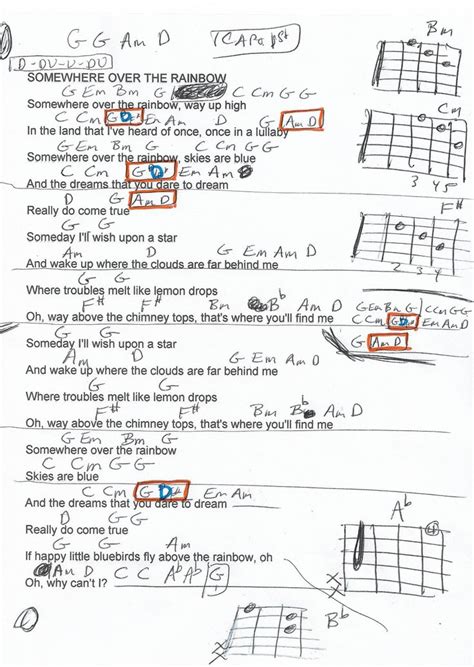 G G Am D 1 CAPO 1st
D-DU-U-DU
Bm
SOMEWHERE OVER THE RAINBOW
G Em Bm G C Cm G G
Somewhere over the rainbow, way up high
Cm
C Cm G D Em Am D G Am D
In the land that I've heard of once, once in a lullaby
G Em Bm G C Cm G G
Somewhere over the rainbow, skies are blue
C Cm G D Em Am
And the dreams that you dare to dream
3 4 5
D G Am D
Really do come true
F#
G G
Someday I'll wish upon a star
Am D G Em Am D
And wake up where the clouds are far behind me
2 3 4
G G
Where troubles melt like lemon drops
F# F# Bm Bb Am D
G Em Bm G C Cm G G
Oh, way above the chimney tops, that's where you'll find me
C Cm G D Em Am D
G G
G Am D
Someday I'll wish upon a star
Am D G Em Am D
And wake up where the clouds are far behind me
G G
Where troubles melt like lemon drops
F# F# Bm Bb Am D
Oh, way above the chimney tops, that's where you'll find me
G Em Bm G
Somewhere over the rainbow
C Cm G G
Skies are blue
C Cm G D Em Am
And the dreams that you dare to dream
Ab
D G G
Really do come true
G G Am
If happy little bluebirds fly above the rainbow, oh
Am D C C Ab Ab G
Oh, why can't I?
x
x
Bb
x
x